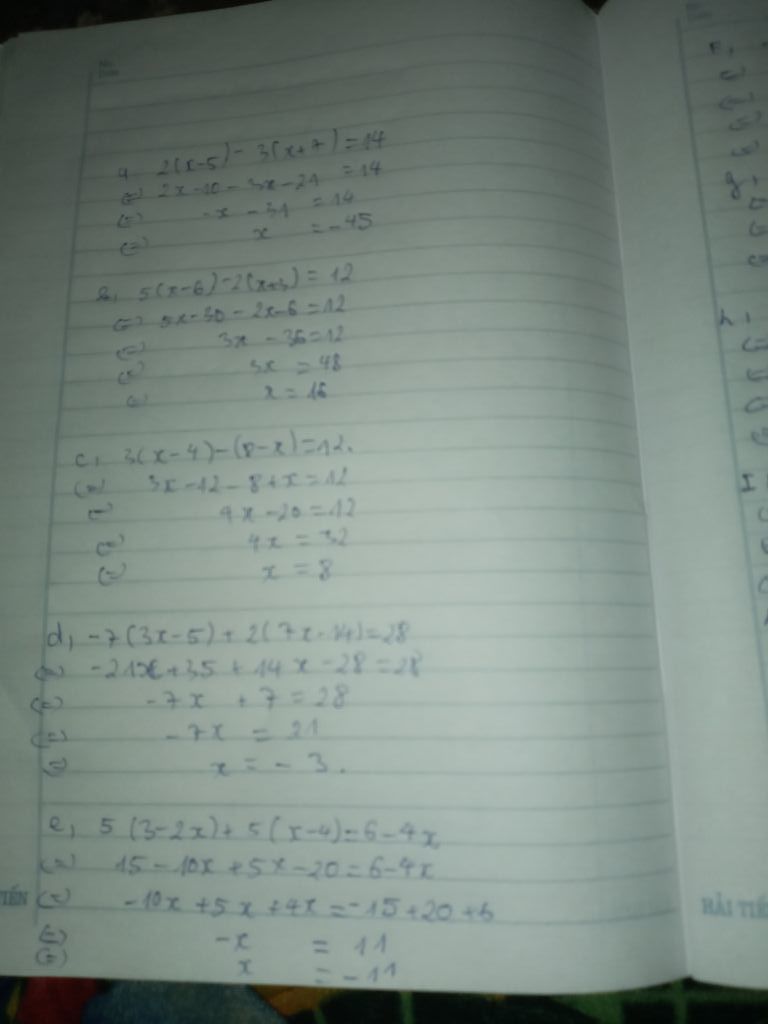 No.
Date
a, 2(x-5) - 3(x+7) = 14
(=) 2x-10-3x-21 = 14
(=) -x - 31 = 14
(=) x = -45
b, 5(x-6) - 2(x+3) = 12
(=) 5x-30-2x-6=12
(=) 3x - 36=12
(=) 3x = 48
(=) x = 16
c, 3(x-4)-(8-x)=12.
(=) 3x-12-8+x=12
(=) 4x-20=12
(=) 4x = 32
(=) x = 8
d, -7(3x-5)+2(7x-14)=28
(=) -21x+35+14x-28=28
(=) -7x + 7 = 28
(=) -7x = 21
(=) x = - 3.
e, 5(3-2x)+5(x-4)=6-4x
(=) 15-10x+5x-20=6-4x
(=) -10x+5x+4x=-15+20+6
(=) -x = 11
(=) x = -11
TIẾN
HẢI TIẾ
F,
g,
h,
I